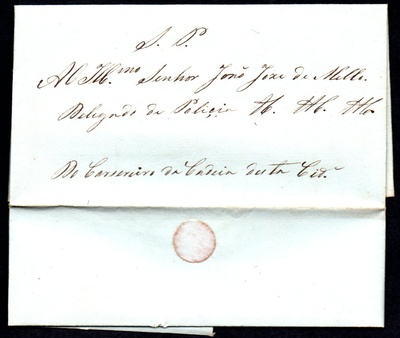 S. P.
Al Ill.mo Senhor João Joze de Mello.
Delegado de Policia &. &&. &&.
Do Carsereiro da Cadeia desta Cid.e